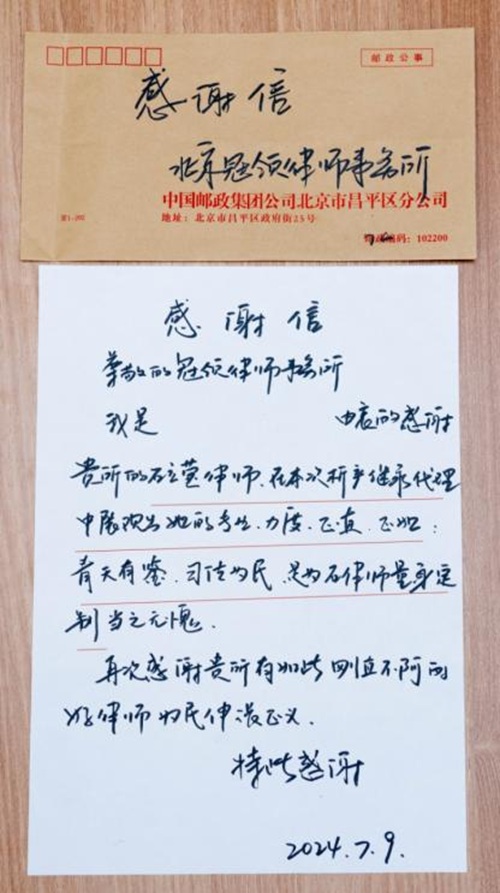 邮政公事
感谢信
北京冠领律师事务所
中国邮政集团公司北京市昌平区分公司
地址：北京市昌平区政府街25号
邮政编码：102200
感谢信
尊敬的冠领律师事务所
我是 由衷的感谢
贵所的石立莹律师.在本次析产继承代理
中展现出她的专业.力度.正直.正如：
青天有鉴.司法为民.是为石律师量身定
制当之无愧.
再次感谢贵所有如此刚直不阿的
好律师为民伸张正义.
特此感谢
2024.7.9.